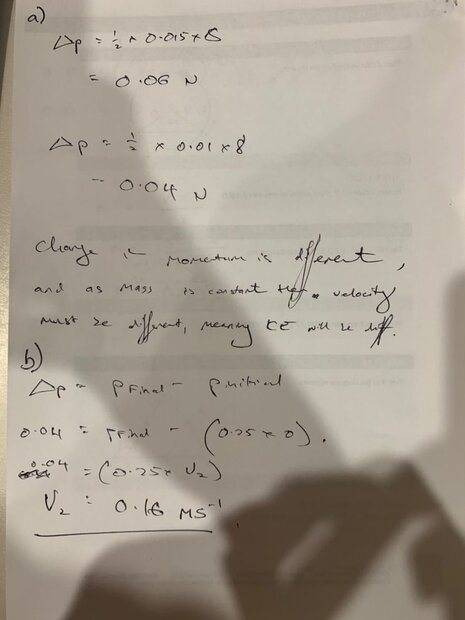 a)
Δp = ½ × 0.015 × 8
= 0.06 N
Δp = ½ × 0.01 × 8
= 0.04 N
Change in momentum is different,
and as mass is constant then velocity
must be different, meaning KE will be diff.
b)
Δp = pFinal - pinitial
0.04 = pFinal - (0.25 × 0).
0.04 = (0.25 × V₂)
V₂ = 0.16 ms⁻¹